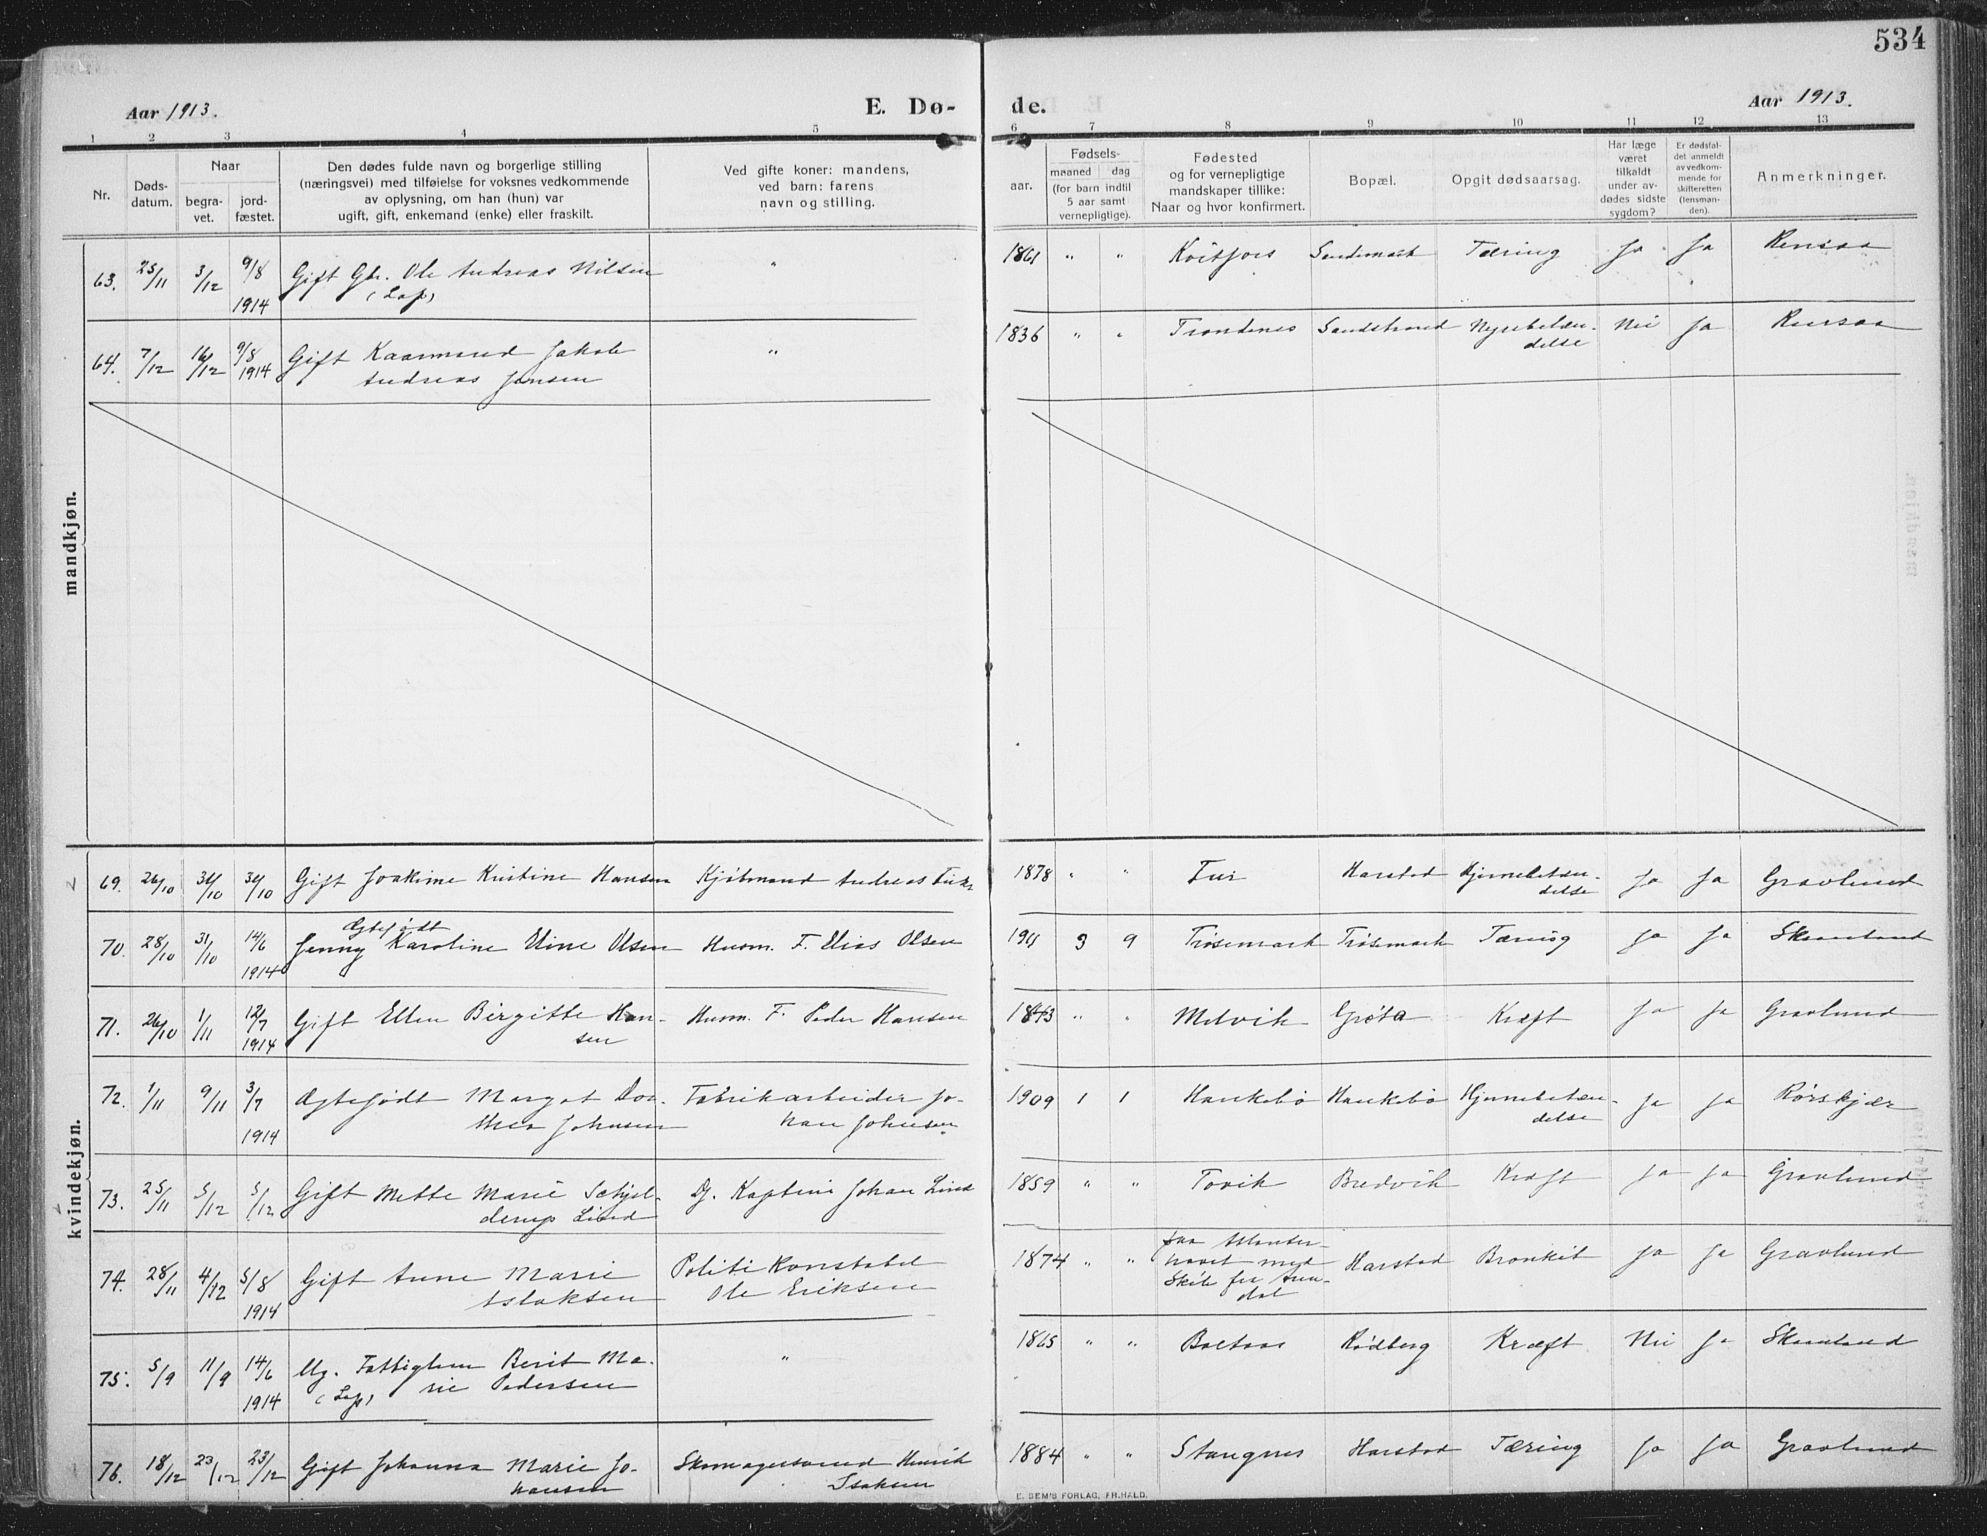 534
Aar 1913. E. Dø- de. Aar 1913.
1 2 3 4 5 6 7 8 9 10 11 12 13
Nr.
Døds-
datum.
Naar
begra-
vet.
jord-
fæstet.
Den dødes fulde navn og borgerlige stilling
(næringsvei) med tilføielse for voksnes vedkommende
av oplysning, om han (hun) var
ugift, gift, enkemand (enke) eller fraskilt.
Ved gifte koner: mandens,
ved barn: farens
navn og stilling.
Fødsels-
aar.
maaned dag
(for barn indtil
5 aar samt
vernepligtige).
Fødested
og for vernepligtige
mandskaper tillike:
Naar og hvor konfirmert.
Bopæl.
Opgit dødsaarsag.
Har læge
været
tilkaldt
under av-
dødes sidste
sygdom?
Er dødsfal-
det anmeldt
av vedkom-
mende for
skifteretten
(lensman-
den).
Anmerkninger.
mandkjøn.
63. 25/11 3/12 9/8 Gift Gbr. Ole Andreas Nilsen " 1861 " " Kvitfors Sandemark Tæring Ja Ja Rensaa
1914 (Lap)
64. 7/12 16/12 9/8 Gift Kaarmand Jakob " 1836 " " Trondenes Sandstrand Nyrebetæn- Nei Ja Rensaa
1914 Andreas Jensen delse
kvindekjøn.
69. 26/10 30/10 30/10 Gift Joakime Kristine Hansen Kjøbmand Andreas 1878 " " Harstad Hjernebetæn- Ja Ja Gravlund
delse
Ægtefødt
70. 28/10 31/10 14/6 Jenny Karoline Eline Olsen Husm. F. Elias Olsen 1911 3 9 Trøsemark Trøsmark Tæring Ja Ja Skaanland
1914
71. 26/10 1/11 12/7 Gift Ellen Birgitte Han- Husm. F. Peder Hansen " " Melvik Grøta Kræft Ja Ja Gravlund
1914 sen
72. 1/11 9/11 3/7 Ægtefødt Margot Dor- Fabrikarbeider Jo- 1909 1 1 Haukebø Haukebø Hjernebetæn- Ja Ja Rørskjær
1914 thea Johnsen han Johnsen delse
73. 25/11 5/12 5/12 Gift Mette Marie Schjel- Dj. Kaptein Johan Lind 1859 " " Tovik Bredvik Kræft Ja Ja Gravlund
derup Lind
74. 28/11 4/12 5/8 Gift Anne Marie Politi Konstabel 1874 " " paa Atlanter- Harstad Bronkit Ja Ja Gravlund
1914 Aslaksen Ole Eriksen havet med
Skib fra Aren-
dal
75. 5/9 11/9 14/6 Ug. Fattiglem Berit Ma- " 1865 " " Boltaas Rødberg Kræft Nei Ja Skaanland
1914 (Lap) rie Pedersen
76. 18/12 23/12 23/12 Gift Johanna Marie Jo- Skomagersvend Henrik 1884 " " Stangnes Harstad Tæring Ja Ja Gravlund
hansen Isaksen
E. SEM'S FORLAG, FR.HALD.